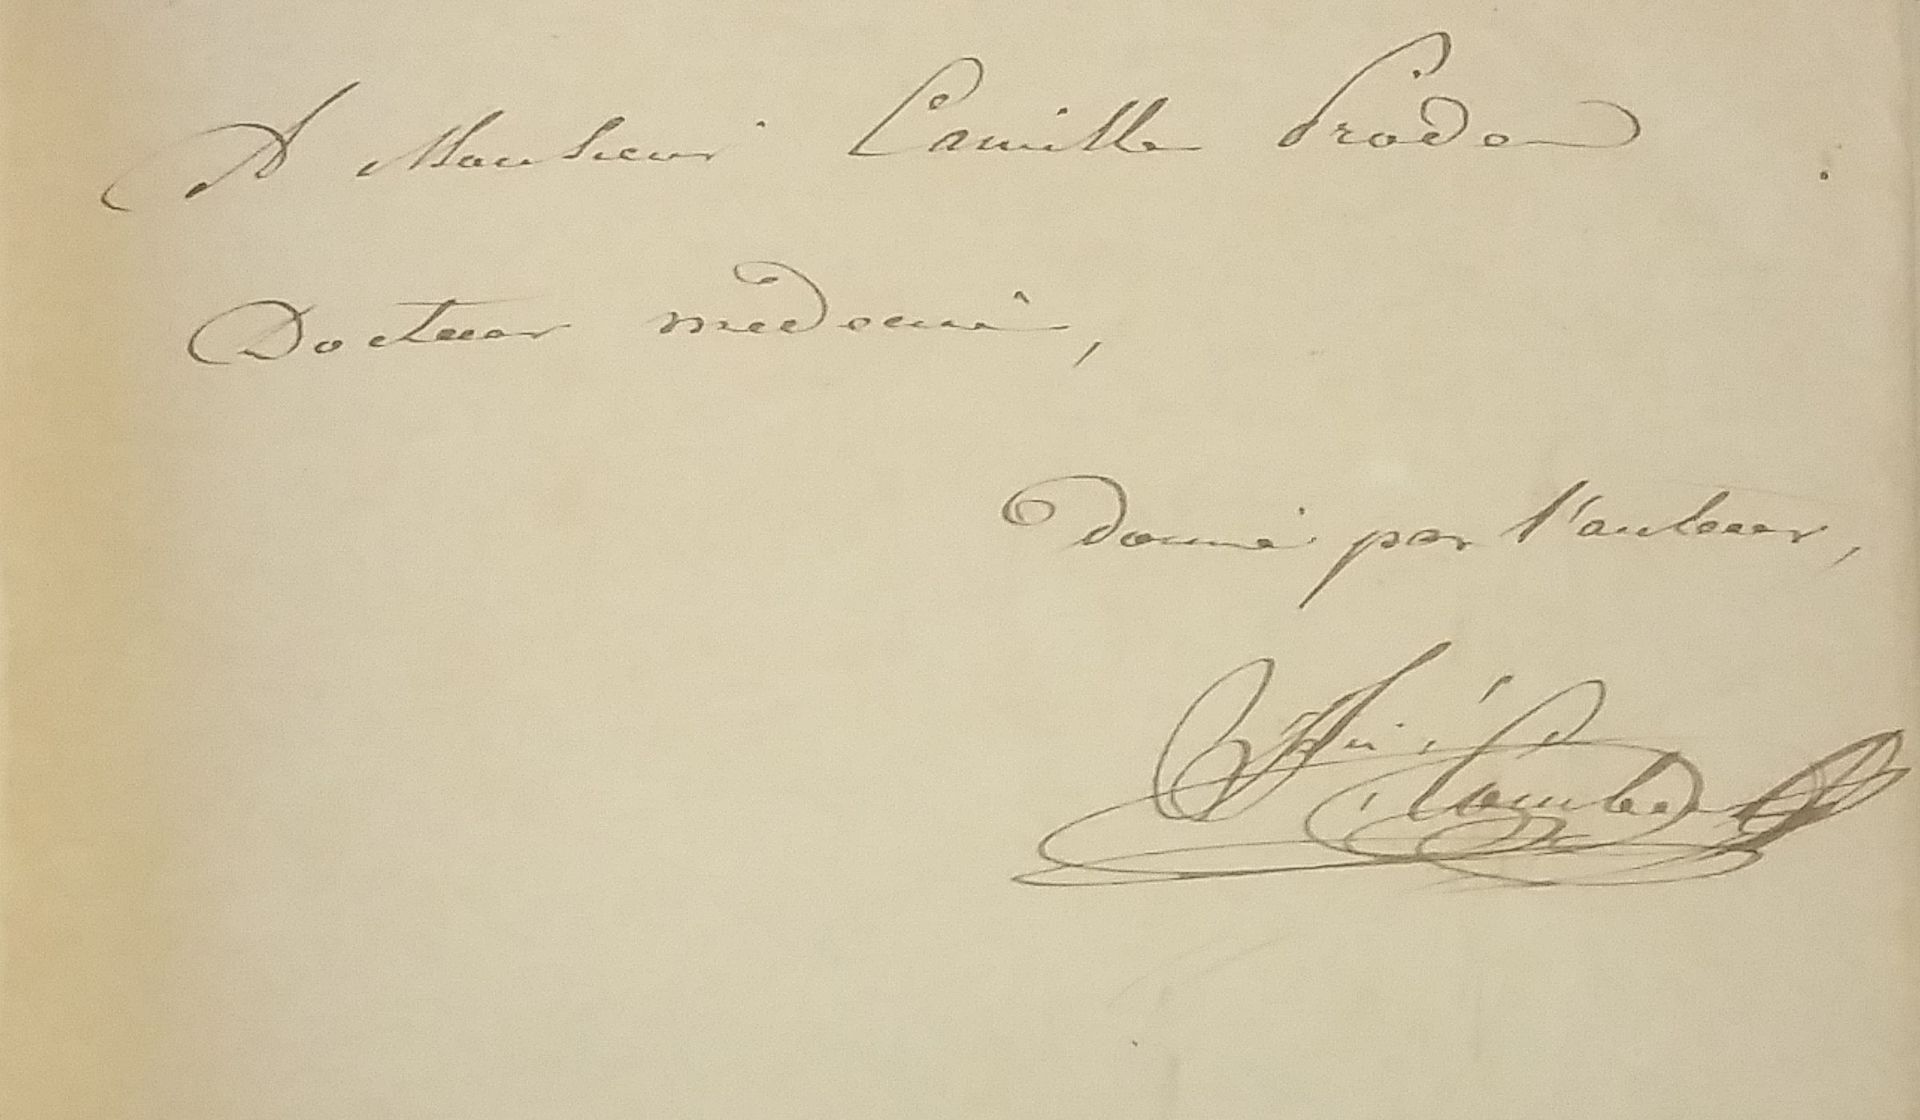 A Monsieur Camille Prades
Docteur médecin,
Donné par l'auteur,